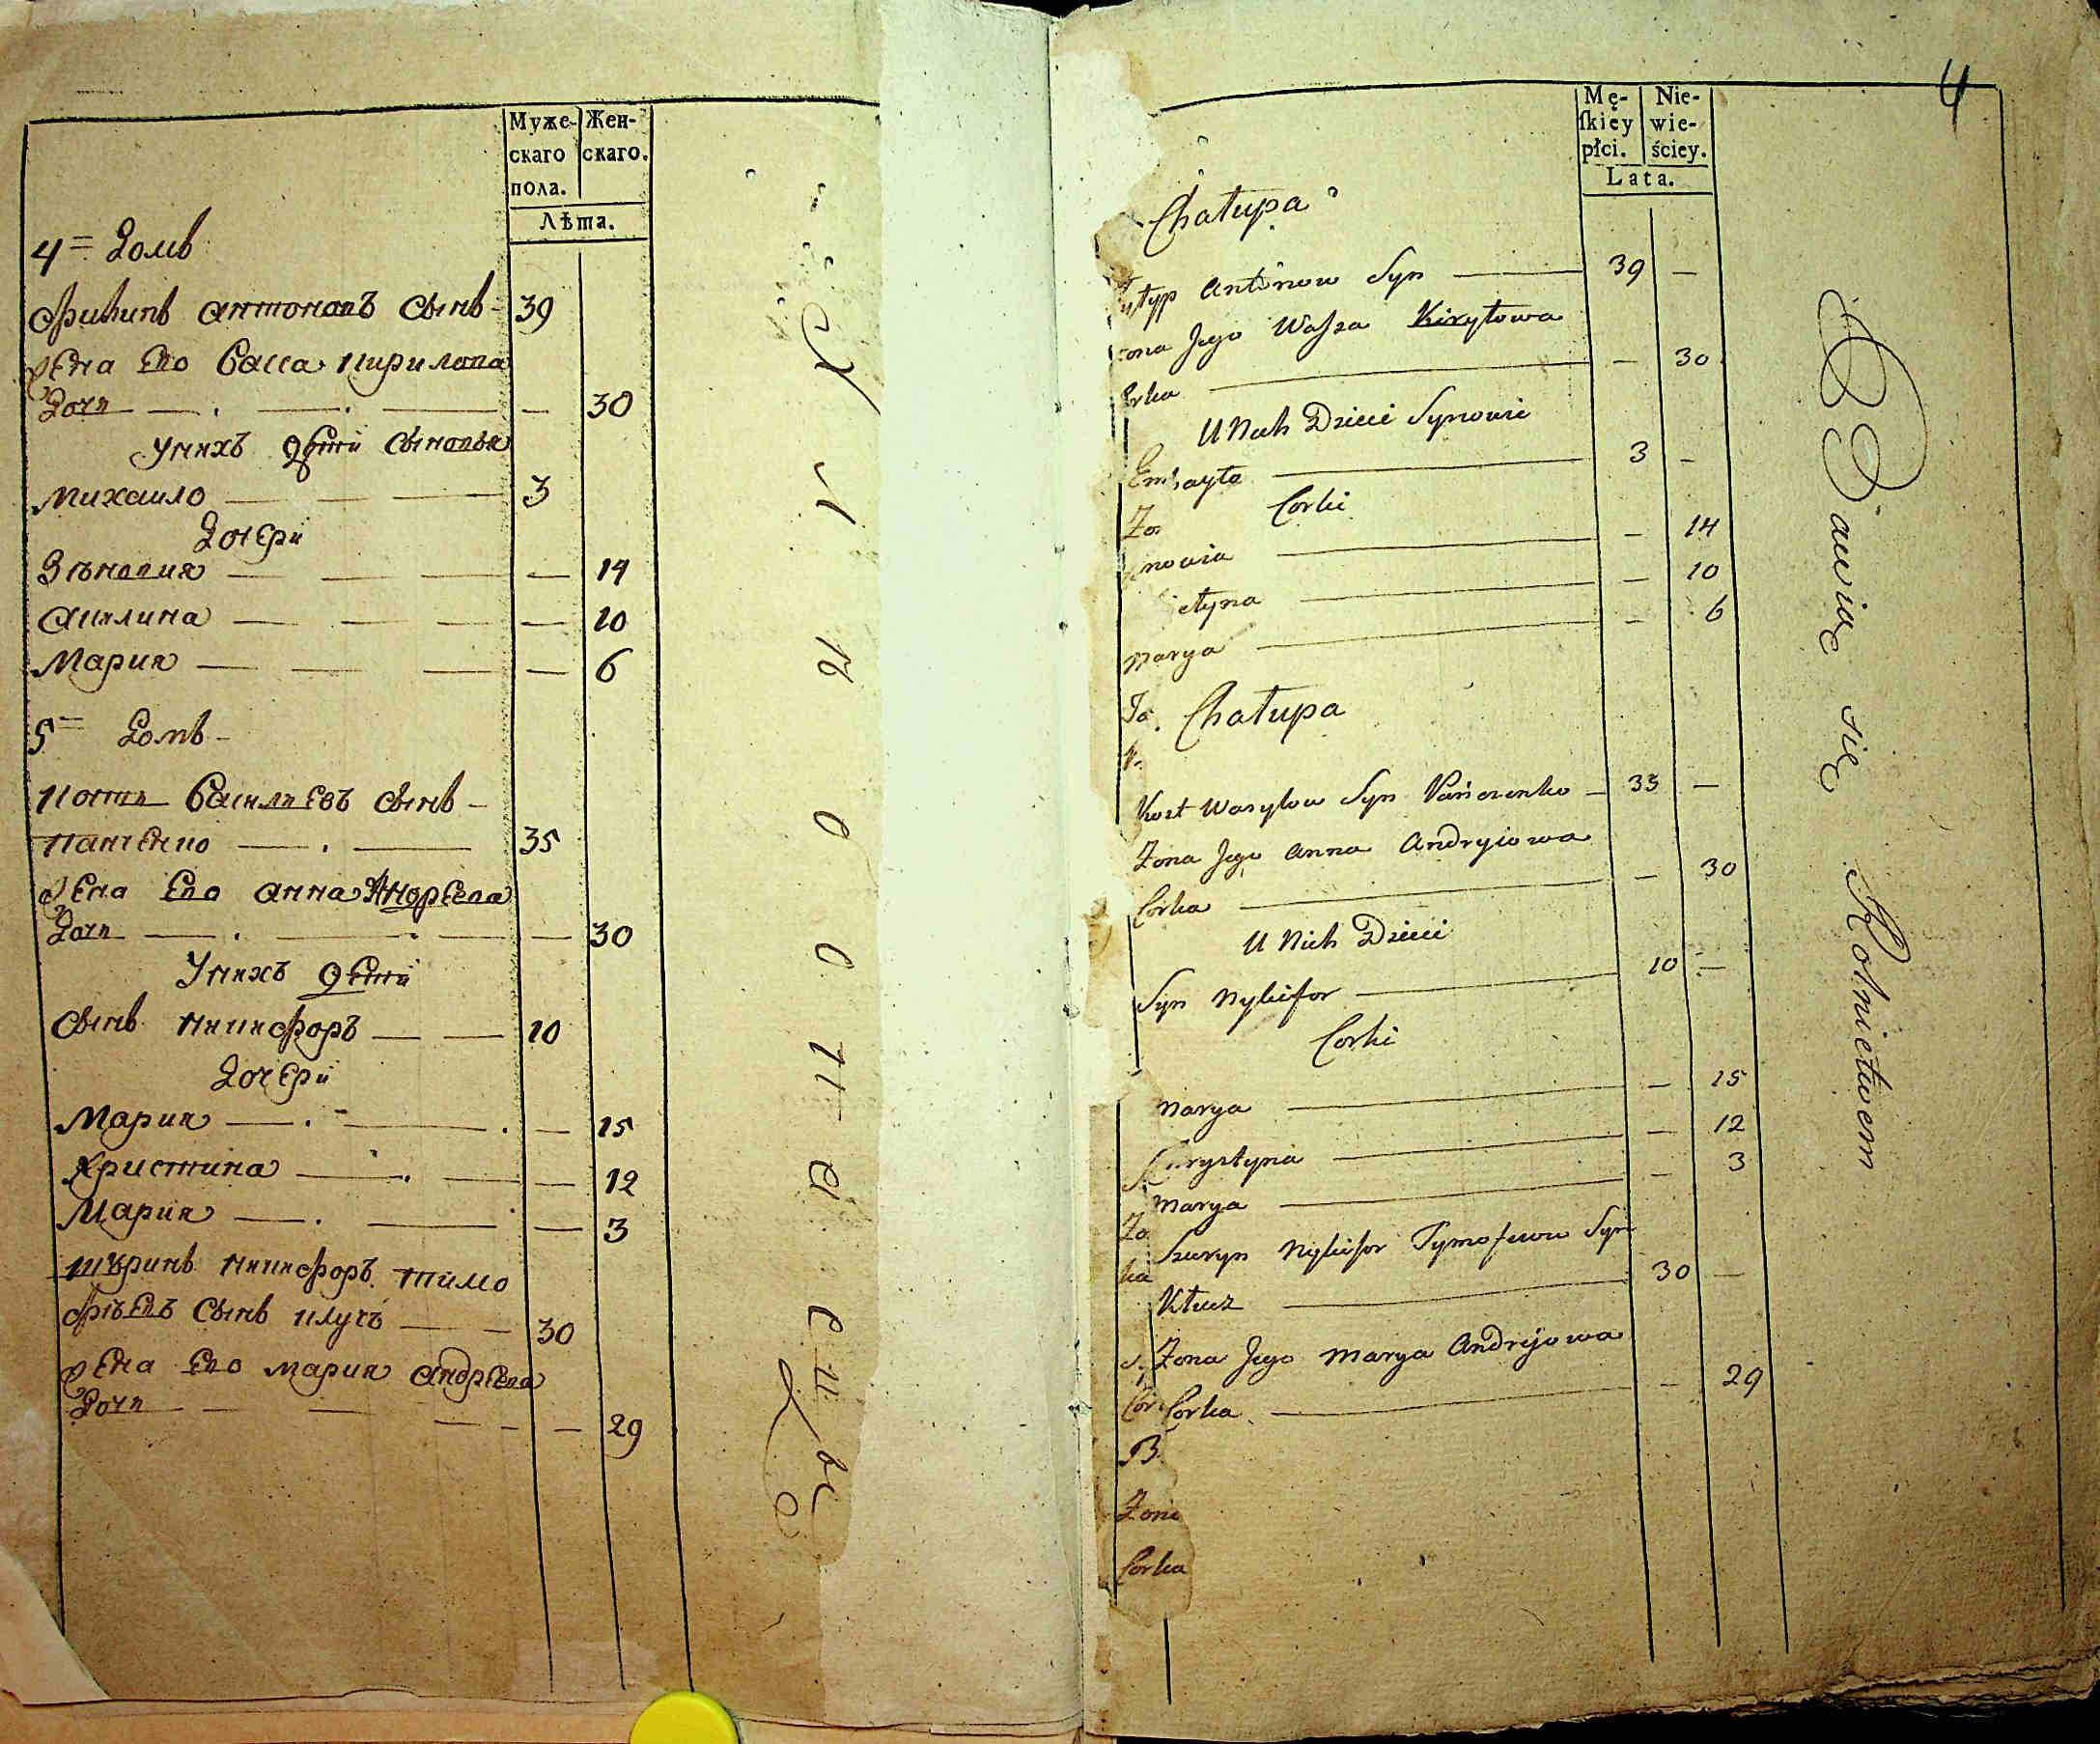 Муже-
скаго
пола.
Жен-
скаго.
Лѣта.
4= Домъ
Филипъ Антоновъ сынъ - 39
Жена Его Васса Кирилова
Дочь — — — — 30
У нихъ дѣти сыновья
Михаило — — — 3
Дочери
Зѣновия — — — — 14
Акилина — — — — 10
Мария — — — — 6
5= Домъ -
Костя Василиевъ сынъ -
Панченко — — 35
Жена Его Анна Андреева
Дочь — — — — 30
У нихъ дѣти
Сынъ Никифоръ — — 10
Дочери
Мария — — — 15
Христина — — — 12
Мария — — — 3
Шуринъ Никифоръ Тимо
фѣевъ сынъ Ключъ — — 30
Жена Его Мария Андреева
Дочь — — — — 29
4
Mę-
skiey
płci.
Nie-
wie-
ściey.
Lata.
Chałupa
Antonow Syn — 39 —
Jego Wassa Kiryłowa
— — 30
U Nich Dzieci Synowie
— 3 —
Corki
— — 14
— — 10
Marya — — 6
Chałupa
Kost Wasylow Syn Pańczenko — 35 —
Żona Jego Anna Andryiowa
Corka — — 30
U Nich Dzieci
Syn Nykifor — 10 —
Corki
Marya — — 15
Chrystyna — — 12
Marya — — 3
Szuryn Nykifor Tymofeiow Syn
Klucz — 30 —
Żona Jego Marya Andrejowa
Corka — — 29
Żona
Corka
Bawią się Rolnictwem